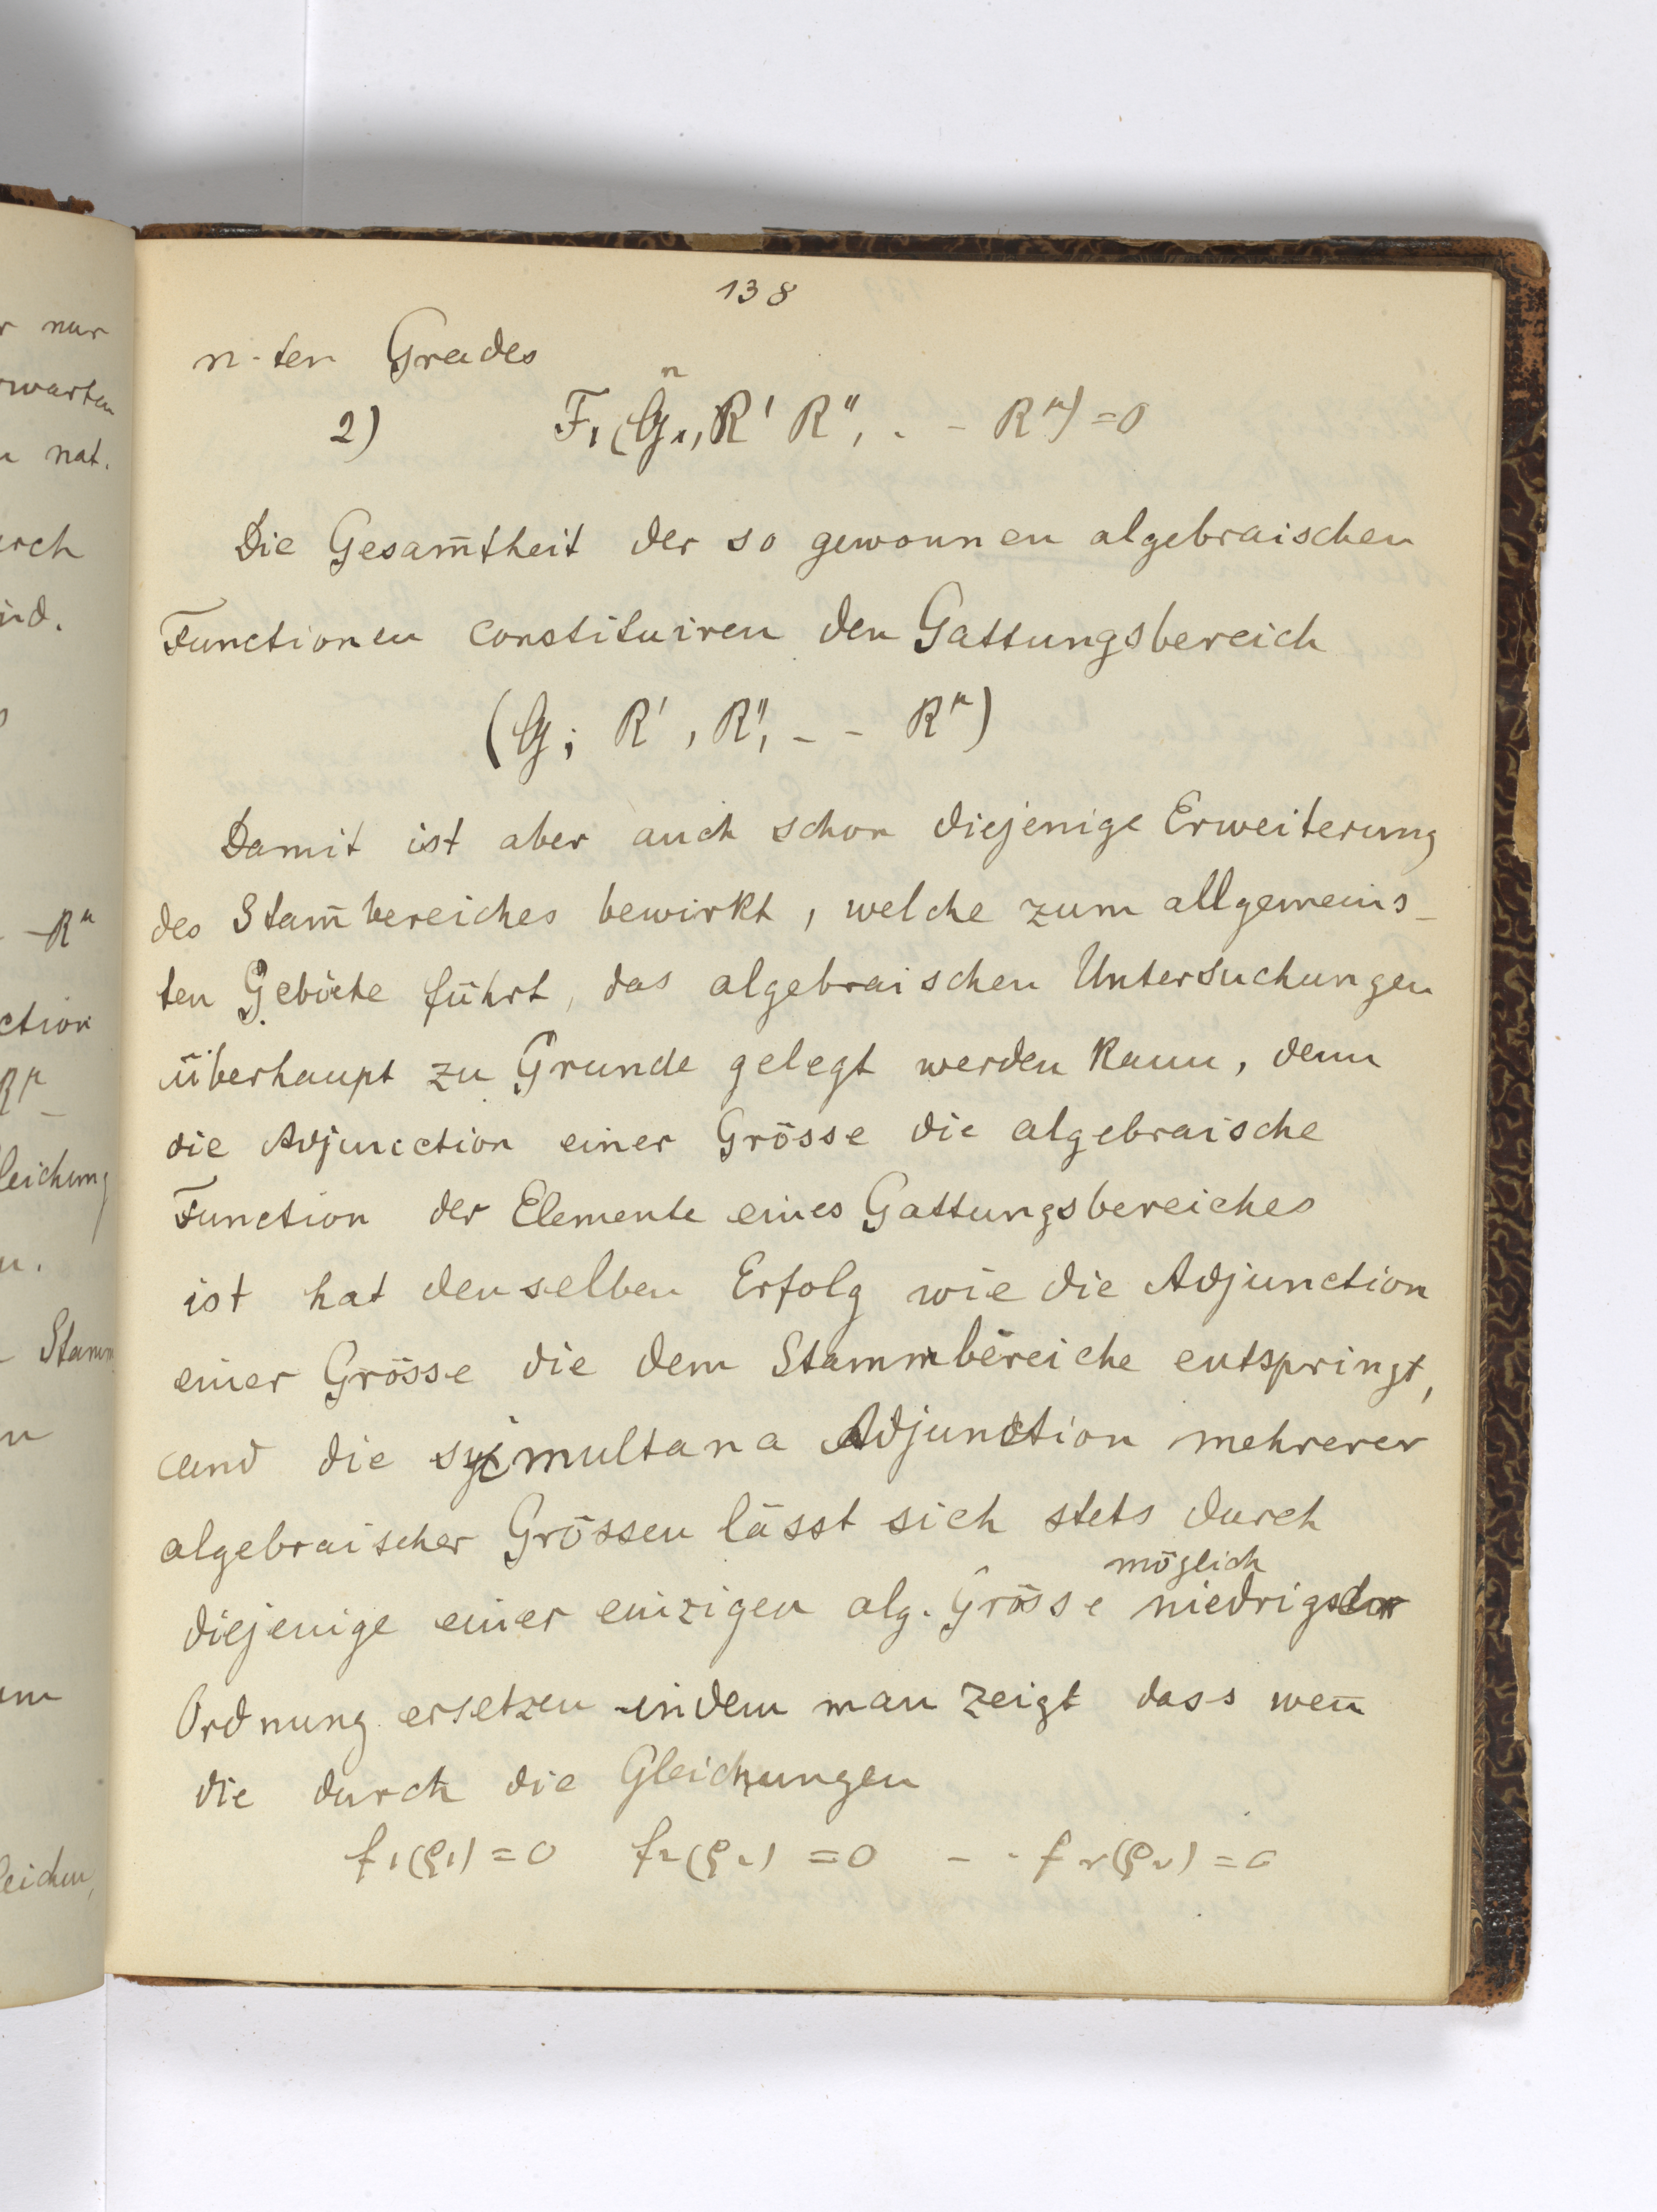 r nur
warten
nat.
urch
ind.
- R^μ
ction
R^μ
leichung
n.
- Stamm
n
um
leichen,
138
n-ten Grades
2) F_1(G_1, R' R'', . - R^μ) = 0
Die Gesam̅theit der so gewonnen algebraischen
Functionen constituiren den Gattungsbereich
(G; R', R'', - - R^μ)
Damit ist aber auch schon diejenige Erweiterung
des Stam̅bereiches bewirkt, welche zum allgemeins-
ten Gebiete führt, das algebraischen Untersuchungen
überhaupt zu Grunde gelegt werden kann, denn
die Adjunction einer Grösse die algebraische
Function der Elemente eines Gattungsbereiches
ist hat denselben Erfolg wie die Adjunction
einer Grösse die dem Stammbereiche entspringt,
und die simultana Adjunction mehrerer
algebraischer Grössen lässt sich stets durch
möglich
diejenige einer einzigen alg. Grösse niedrigster
Ordnung ersetzen indem man zeigt dass wen̅
die durch die Gleichungen
f_1(ρ_1) = 0 f_2(ρ_2) = 0 - - f_ν(ρ_ν) = 0